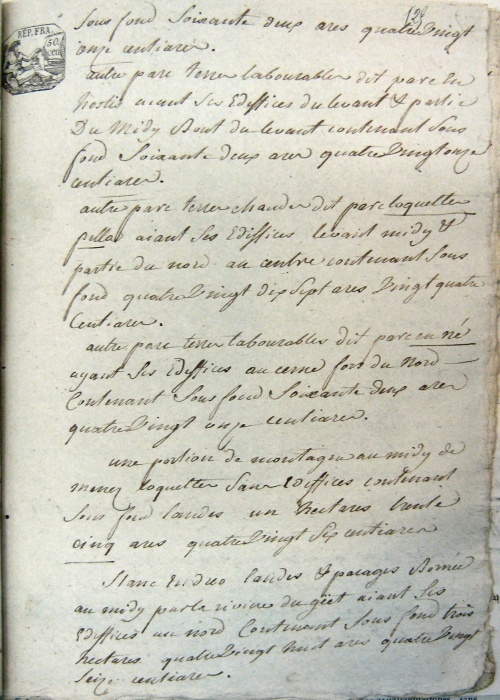 129
REP. FRA.
50 cen
Sous fond Soixante deux ares quatre Vingt
onze centiares.
autre parc terres labourables dit parc En
hostis aiant Ses Ediffices du levant & partie
Du Midy Bout du levant contenant Sous
fond Soixante deux ares quatre Vingt onze
centiares.
autre parc terres chaudes dit parc loquelles
pillas aiant Ses Ediffices levant midy &
partie du nord au cenbre contenant Sous
fond quatre Vingt dix Sept ares Vingt quatre
Centiares.
autre parc terres labourables dit parc en né
ayant Ses Ediffices au cerne fors du Nord
Contenant Sous fond Soixante deux ares
quatre Vingt onze centiares.
une portion de montagne au midy de
menez loquelles Sans Ediffices contenant
Sous fond landes un hectares trente
cinq ares quatre Vingt Six centiares
Stanc En dreo landes & pacages Bornée
au midy par la riviere du guet aiant Ses
Ediffices au nord Contenant Sous fond trois
hectares quatre Vingt huit ares quatre Vingt
Seize centiares.